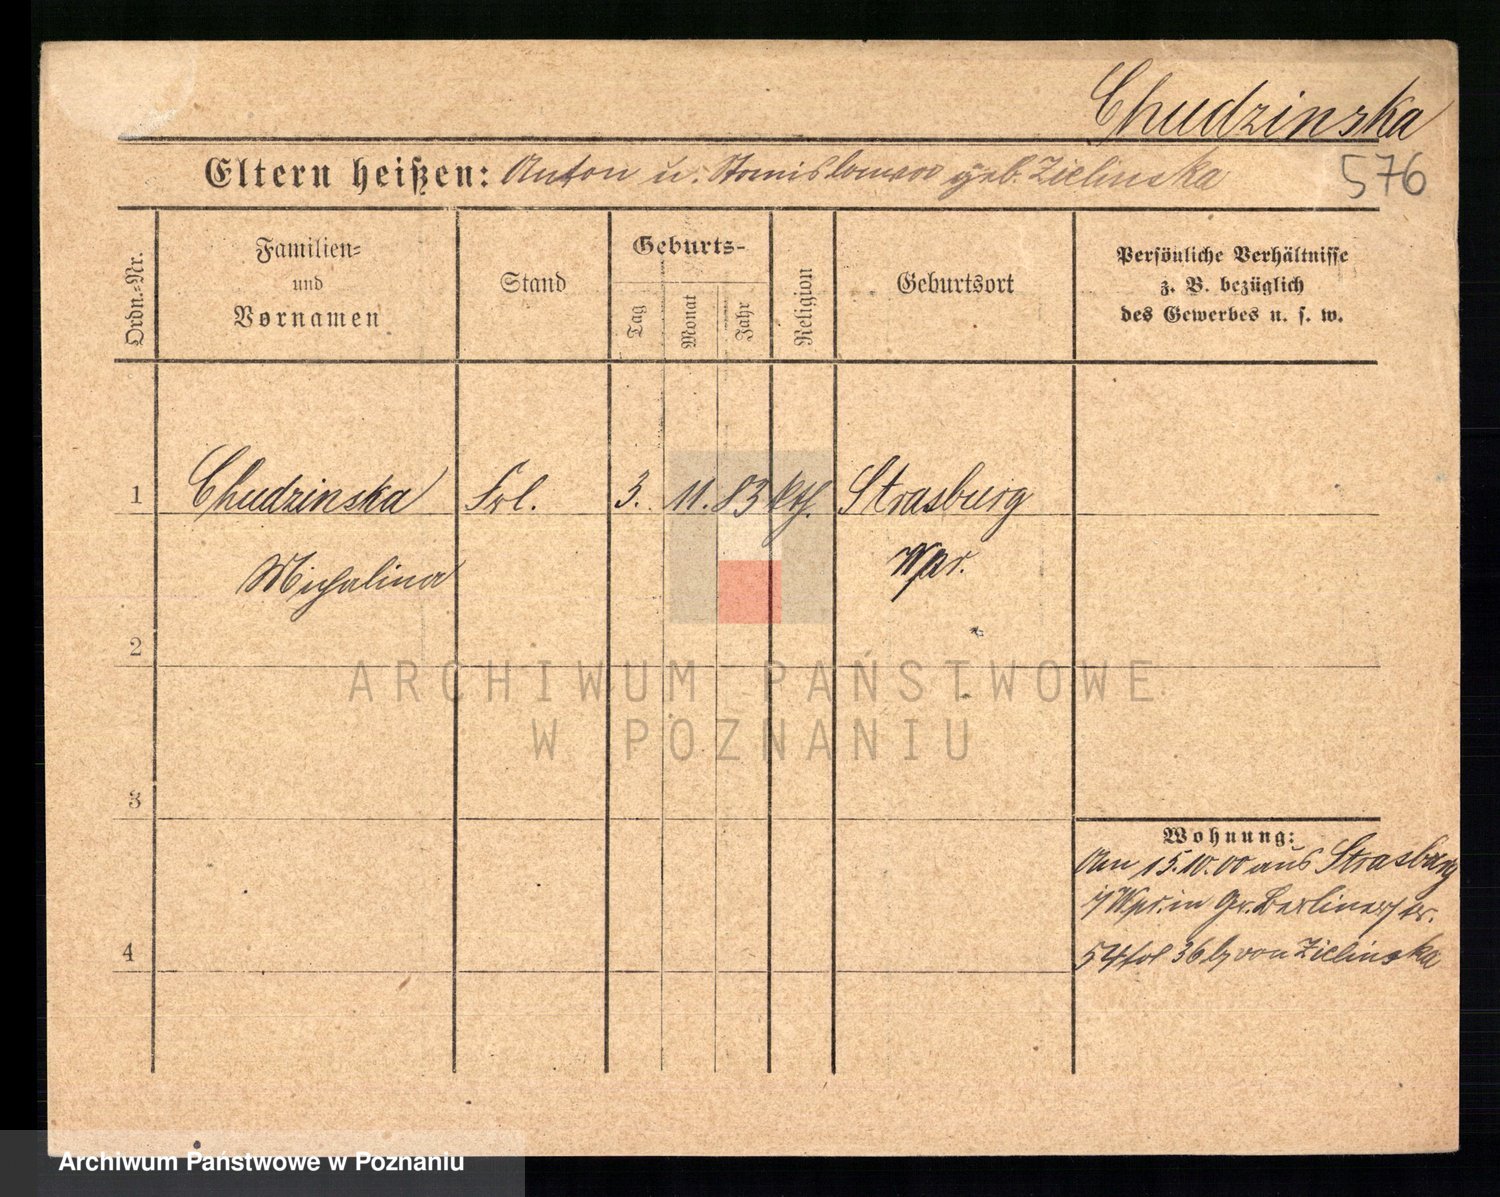 Chudzinska
Eltern heißen: Anton u. Stanislawa geb. Zielinska
576
Ordn.-Nr.
Familien-
und
Vornamen
Stand
Geburts-
Tag
Monat
Jahr
Religion
Geburtsort
Persönliche Verhältnisse
z. B. bezüglich
des Gewerbes u. s. w.
1 Chudzinska Frl. 3. 11. 83 kth. Strasburg
Michalina Wpr.
2
ARCHIWUM PAŃSTWOWE
W POZNANIU
3
Wohnung:
Am 15.10.00 aus Strasburg
i/ Wpr. in Gr. Berlinerstr.
4
54 36 b von Zielinska
Archiwum Państwowe w Poznaniu